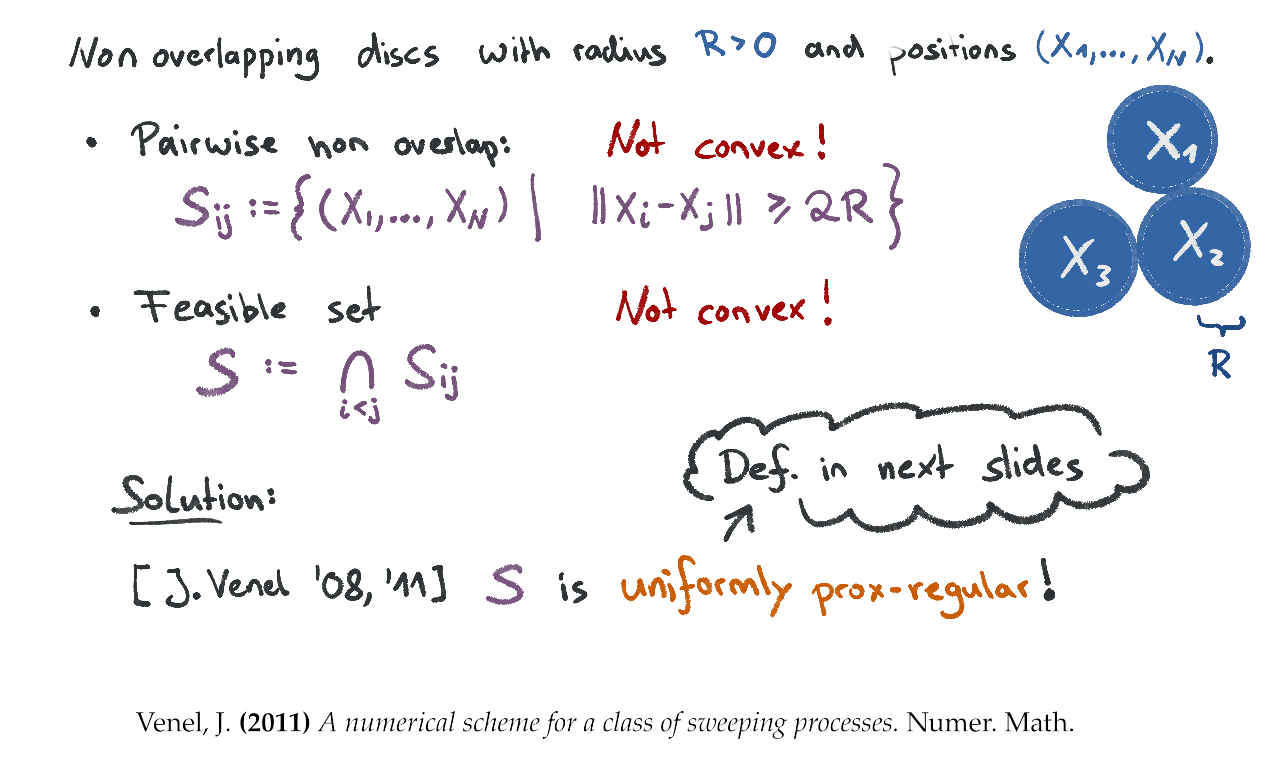 Non overlapping discs with radius R>0 and positions (X₁,..., X_N).
• Pairwise non overlap: Not convex!
S_ij := {(X₁,..., X_N) | ||X_i-X_j|| ⩾ 2R}
X₁
X₂
X₃
R
• Feasible set Not convex!
S := ⋂_{i<j} S_ij
Def. in next slides
Solution:
[J. Venel '08, '11] S is uniformly prox-regular!
Venel, J. (2011) A numerical scheme for a class of sweeping processes. Numer. Math.